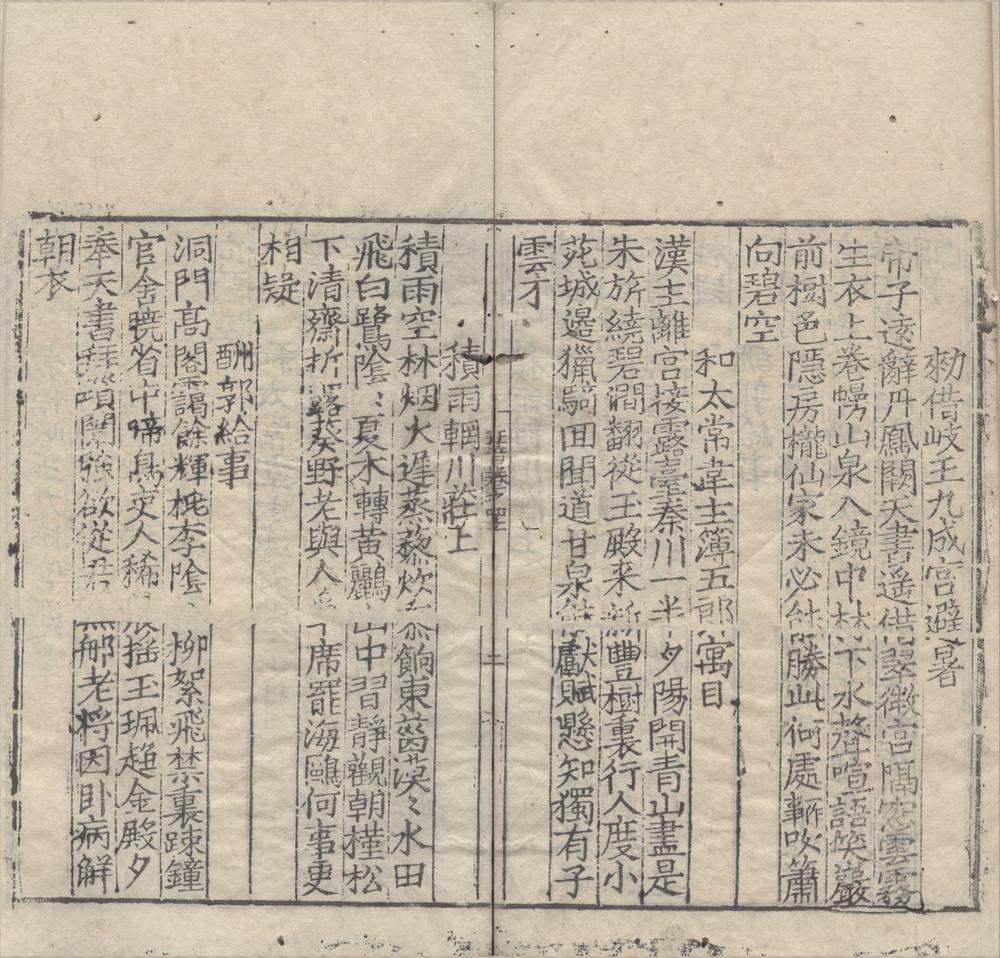 勑借岐王九成宮避暑
帝子遠辭丹鳳闕天書遥借翠微宮隔窓雲霧
生衣上卷幔山泉入鏡中林下水聲喧語笑巖
前樹色隱房櫳仙家未必能勝此何處輙吹簫
向碧空
和太常韋主簿五郎寓目
漢主離宮接露臺秦川一半夕陽開青山盡是
朱旂繞碧澗翻從玉殿来新豐樹裏行人度小
苑城邉獵騎囬聞道甘泉能獻賦懸知獨有子
雲才
二
積雨輞川莊上
積雨空林烟火遲蒸藜炊黍餉東菑漠〻水田
飛白鷺陰〻夏木轉黄鸝山中習靜觀朝槿松
下清齋折露葵野老與人爭席罷海鷗何事更
相疑
酬郭給事
洞門高閣靄餘輝桃李陰柳絮飛禁裏踈鐘
官舍曉省中啼鳥吏人稀晨搖玉珮趍金殿夕
奉天書拜瑣闈強欲從君無那老将因卧病解
朝衣